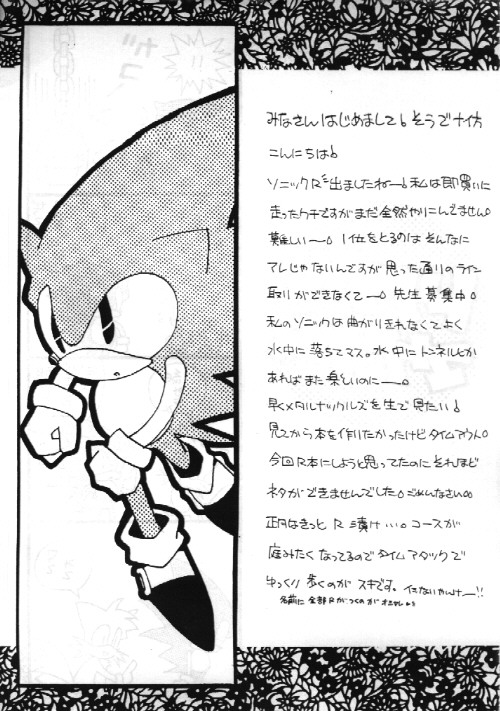 みなさんはじめまして♪そうでナイ方
こんにちは♪
ソニックR出ましたねー♪私は即買いに
走ったクチですがまだ全然やりこんでません。
難しい〜。1位をとるのはそんなに
アレじゃないんですが思った通りのライン
取りができなくて〜。先生募集中。
私のソニックは曲がりきれなくてよく
水中に落ちてマス。水中にトンネルとか
あればまた楽しいのに〜。
早くメタルナックルズを生で見たい♪
見てから本を作りたかったけどタイムアウト。
今回R本にしようと思ってたのにそれほど
ネタができませんでした。ごめんなさい。
正月はきっとR漬け…。コースが
庭みたくなってるのでタイムアタックで
ゆっくり歩くのがスキです。イミないやんけー!!
名前に全部Rがつくのが